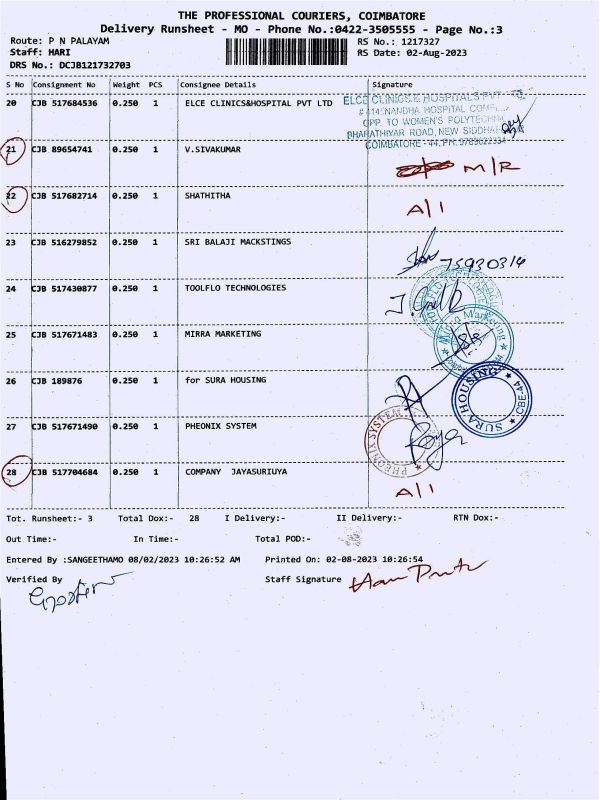 THE PROFESSIONAL COURIERS, COIMBATORE
Delivery Runsheet - MO - Phone No.:0422-3505555 - Page No.:3
Route: P N PALAYAM
RS No.: 1217327
Staff: HARI
RS Date: 02-Aug-2023
DRS No.: DCJB121732703
S No Consignment No Weight PCS Consignee Details Signature
20 CJB 517684536 0.250 1 ELCE CLINICS&HOSPITAL PVT LTD
ELCE CLINICS & HOSPITALS PVT
# 414 NANDHA HOSPITAL
OPP. TO WOMEN'S POLYTECHNIC
BHARATHIYAR ROAD, NEW SIDDHA
COIMBATORE - 44. PH: 9789622334
21 CJB 89654741 0.250 1 V.SIVAKUMAR M/R
22 CJB 517682714 0.250 1 SHATHITHA A/I
23 CJB 516279852 0.250 1 SRI BALAJI MACKSTINGS
24 CJB 517430877 0.250 1 TOOLFLO TECHNOLOGIES
25 CJB 517671483 0.250 1 MIRRA MARKETING
Marketing
26 CJB 189876 0.250 1 for SURA HOUSING
SURA HOUSING
CBE-44
27 CJB 517671490 0.250 1 PHEONIX SYSTEM
PHEONIX SYSTEM
28 CJB 517704684 0.250 1 COMPANY JAYASURIUYA A/I
Tot. Runsheet:- 3 Total Dox:- 28 I Delivery:- II Delivery:- RTN Dox:-
Out Time:- In Time:- Total POD:-
Entered By :SANGEETHAMO 08/02/2023 10:26:52 AM Printed On: 02-08-2023 10:26:54
Verified By Staff Signature